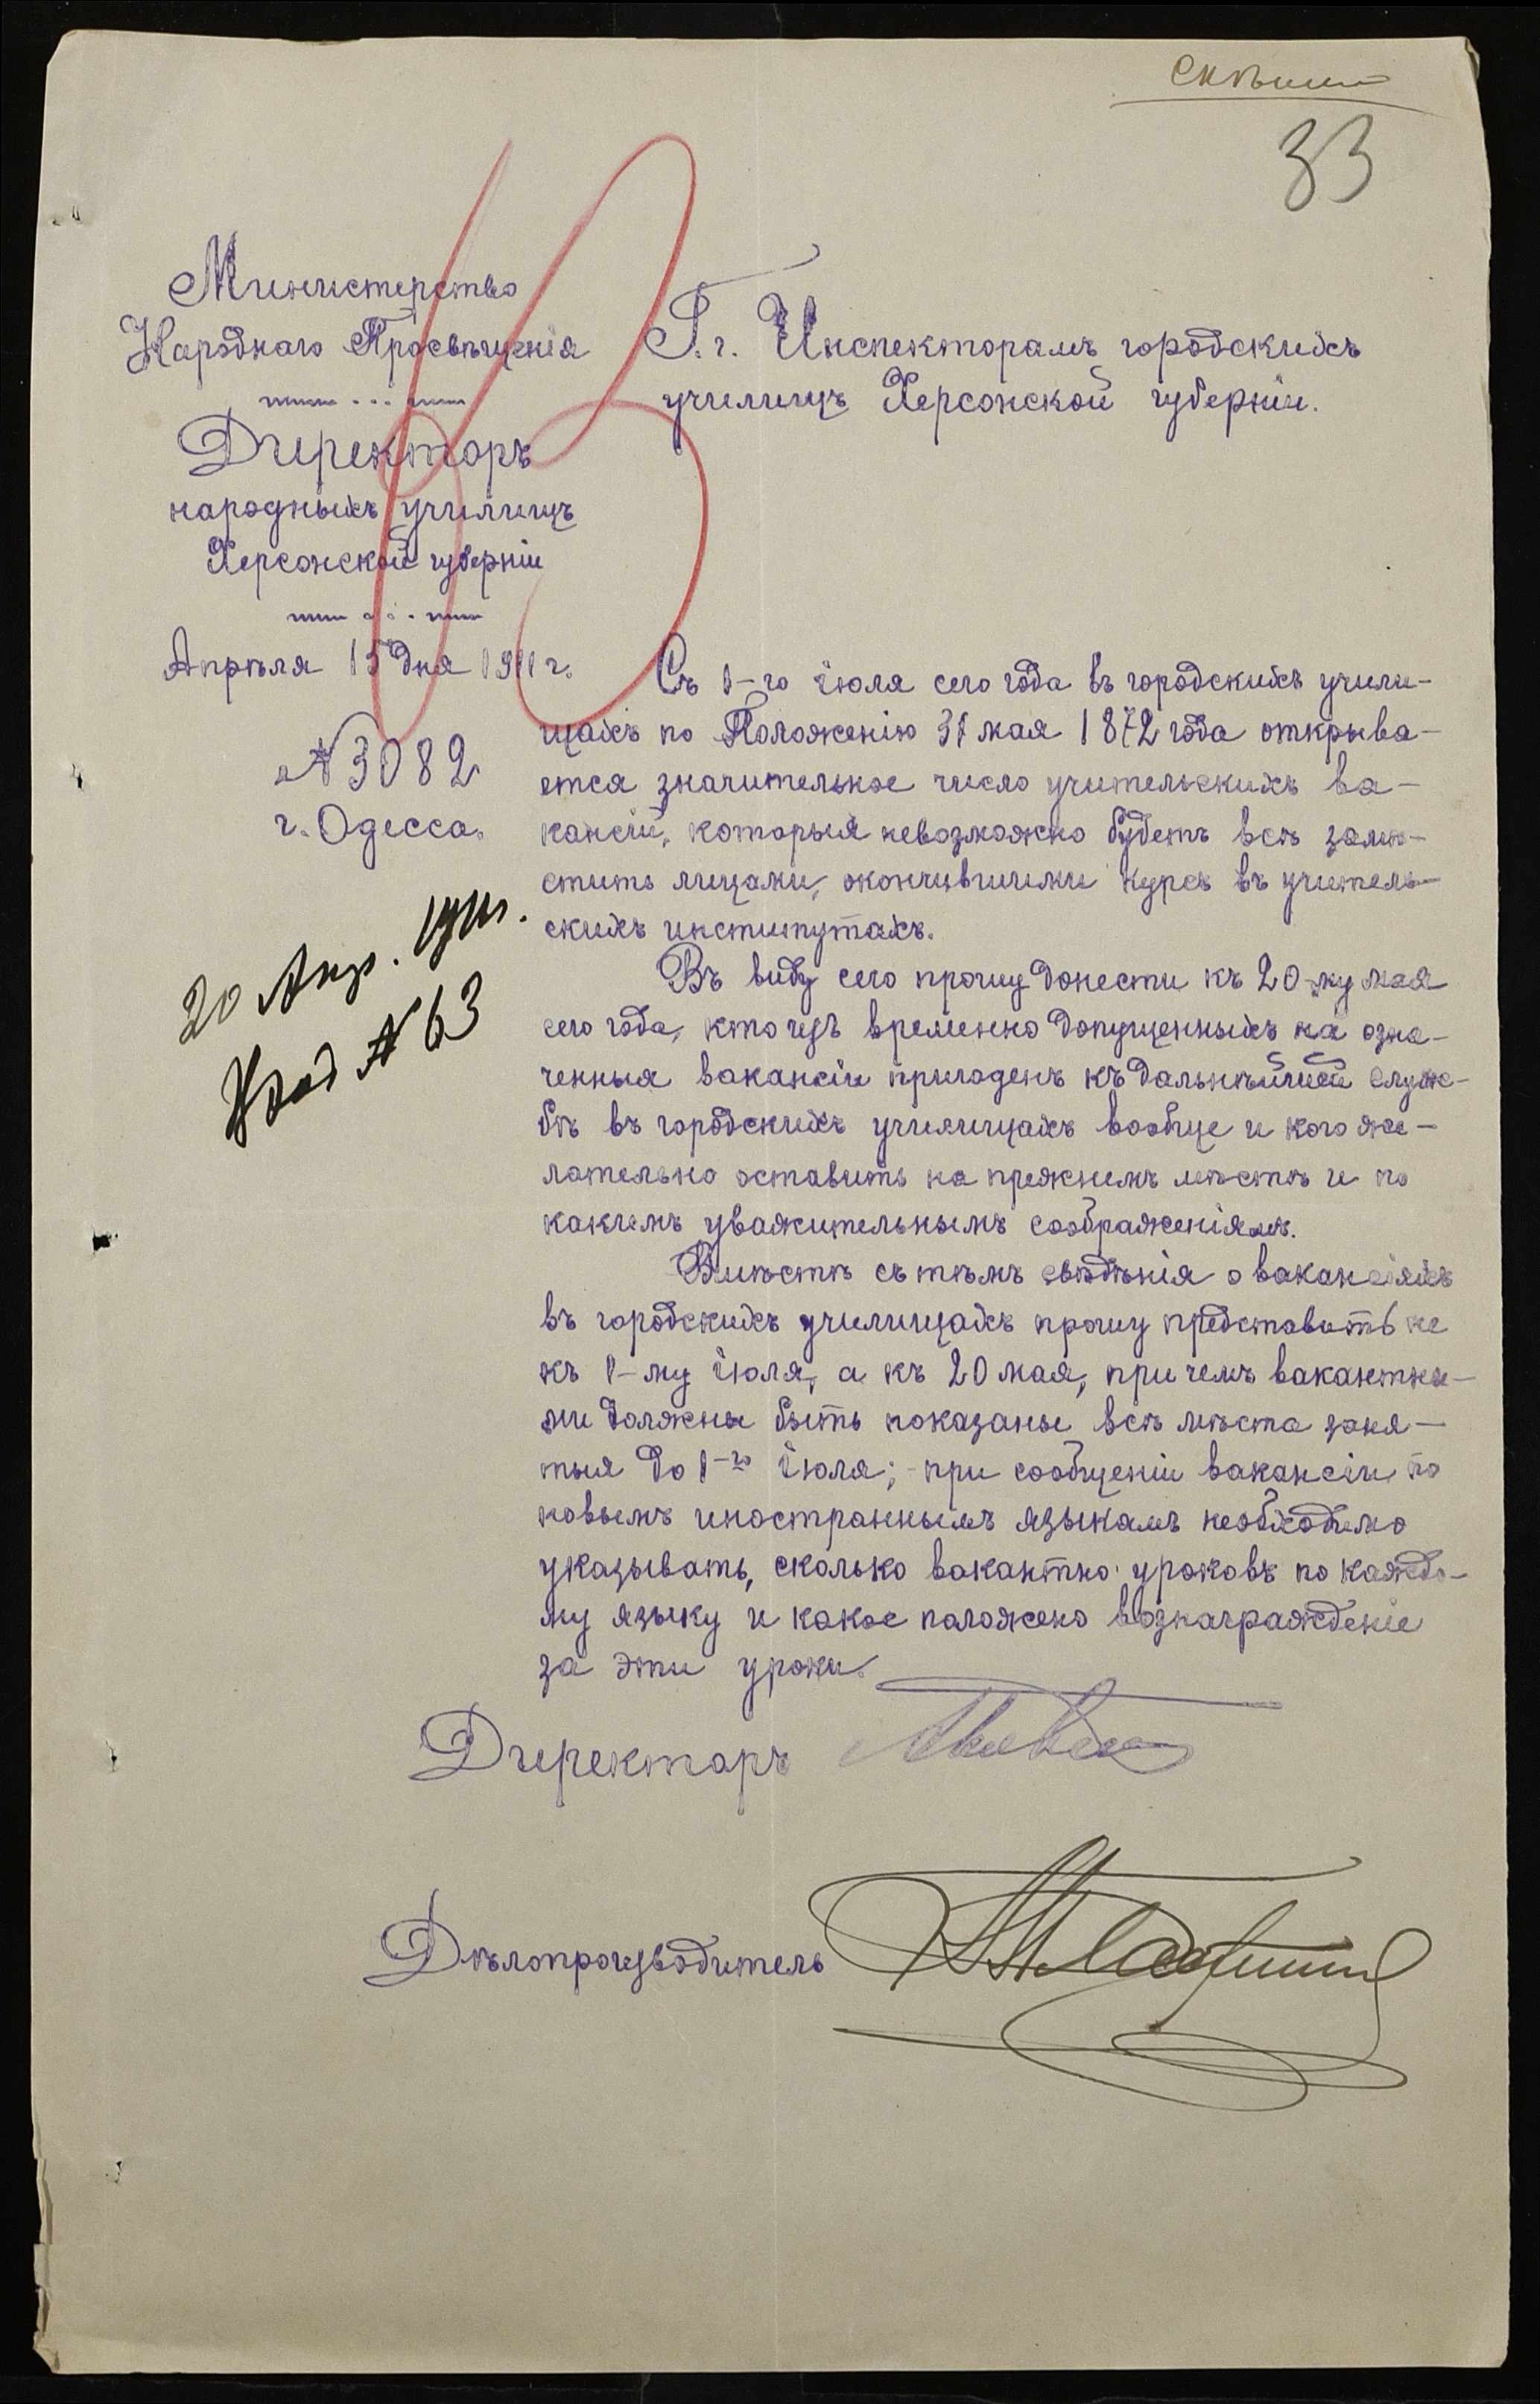 33
Министерство
Народнаго Просвѣщенія
Директоръ
народныхъ училищъ
Херсонской губерніи
Апрѣля 15 дня 1911 г.
№ 3082
г. Одесса.
20 Апр. 1911.
Вход № 63
Г.г. Инспекторамъ городскихъ
училищъ Херсонской губерніи.
Съ 1-го іюля сего года въ городскихъ учили-
щахъ по Положенію 31 мая 1872 года открыва-
ется значительное число учительскихъ ва-
кансій, которыя невозможно будетъ всѣ замѣ-
стить лицами, окончившими курсъ въ учитель-
скихъ институтахъ.
Въ виду сего прошу донести къ 20-му мая
сего года, кто изъ временно допущенныхъ на озна-
ченныя вакансіи пригоденъ къ дальнѣйшей служ-
бѣ въ городскихъ училищахъ вообще и кого же-
лательно оставить на прежнемъ мѣстѣ и по
какимъ уважительнымъ соображеніямъ.
Вмѣстѣ съ тѣмъ свѣдѣнія о вакансіяхъ
въ городскихъ училищахъ прошу представить не
къ 1-му іюля, а къ 20 мая, при чемъ вакантны-
ми должны быть показаны всѣ мѣста заня-
тыя до 1-го іюля; при сообщеніи вакансіи по
новымъ иностраннымъ языкамъ необходимо
указывать, сколько вакантно уроковъ по каждо-
му языку и какое положено вознагражденіе
за эти уроки.
Директоръ
Дѣлопроизводитель